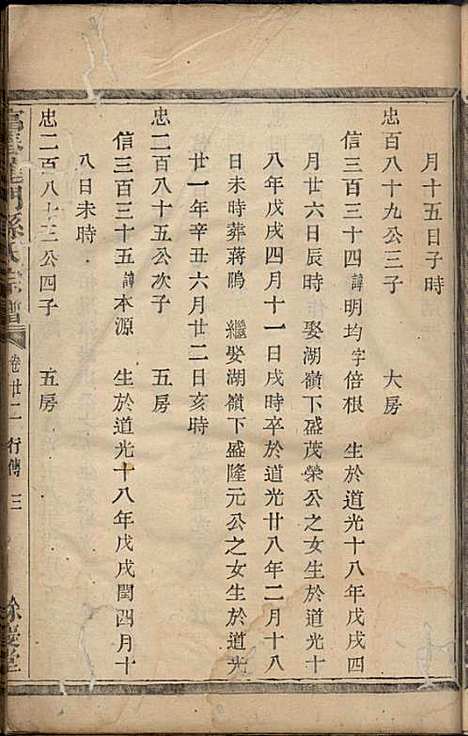 月十五日子時
忠百八十九公三子　大房
信三百三十四諱明均字倍根　生於道光十八年戊戌四
月廿六日辰時　娶湖嶺下盛茂榮公之女生於道光十
八年戊戌四月十一日戌時卒於道光廿八年二月十八
日未時葬蔣鳴　繼娶湖嶺下盛隆元公之女生於道光
廿一年辛丑六月廿二日亥時
忠二百八十五公次子　五房
信三百三十五諱本源　生於道光十八年戊戌閏四月十
八日未時
忠二百八十三公四子　五房
龍門孫氏宗譜　卷廿二　行傳　三　餘慶堂